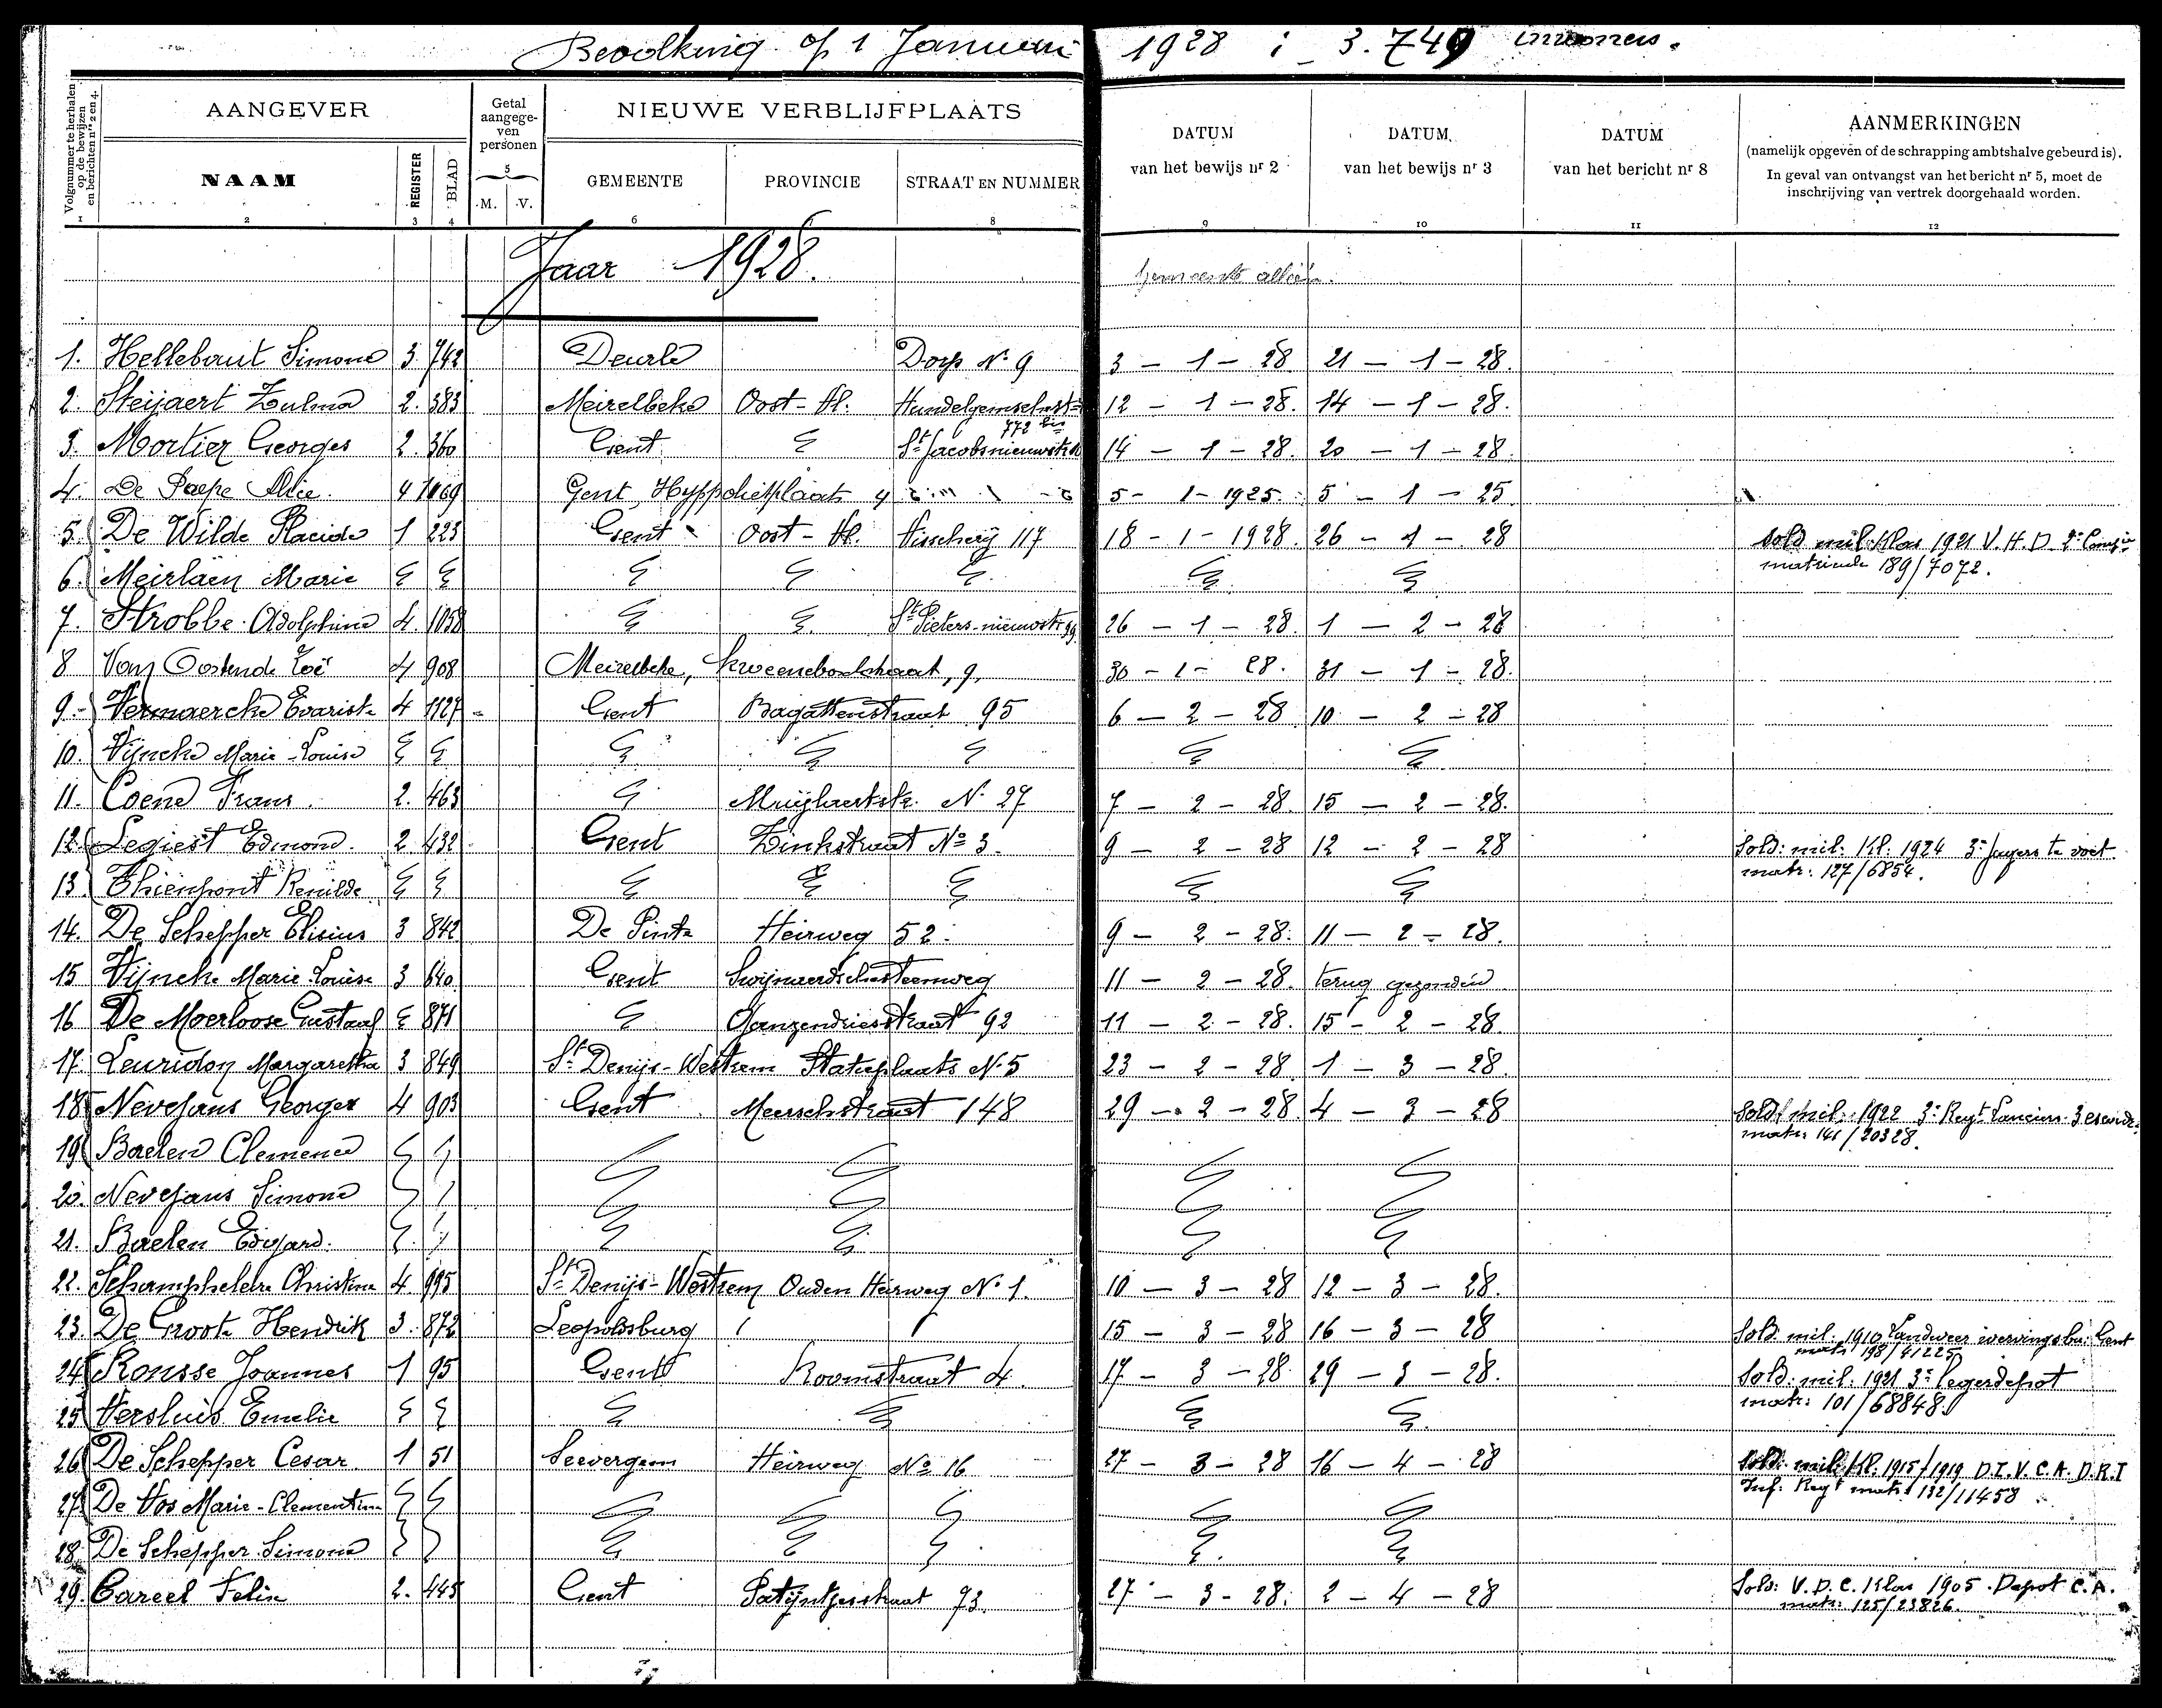 Bevolking op 1 Januari 1928 : 3.749 inwoners.
Volgnummer te herhalen op de bewijzen en berichten nrs 2 en 4.
AANGEVER
Getal aangegeven personen
NIEUWE VERBLIJFPLAATS
DATUM van het bewijs nr 2
DATUM van het bewijs nr 3
DATUM van het bericht nr 8
AANMERKINGEN
(namelijk opgeven of de schrapping ambtshalve gebeurd is).
In geval van ontvangst van het bericht nr 5, moet de
inschrijving van vertrek doorgehaald worden.
NAAM REGISTER BLAD 5 M. V. GEMEENTE PROVINCIE STRAAT EN NUMMER
1 2 3 4 6 8 9 10 11 12
Jaar 1928.
Gemeente alleen.
1. Hellebaut Simone 3 742 Deurle Dorp No 9 3 - 1 - 28. 21 - 1 - 28.
2. Steijaert Zulma 2. 383 Meirelbeke Oost-Vl. 772 bis 12 - 1 - 28. 14 - 1 - 28.
3. Mortier Georges 2. 360 Gent St Jacobsnieuwstr 14 - 1 - 28. 20 - 1 - 28.
4. De Paepe Alice. 4 1169 Gent, 4 5 - 1 - 1925. 5 - 1 - 25
5. De Wilde Placide 1 223 Gent Oost-Vl. Visscherij 117 18 - 1 - 1928. 26 - 1 - 28 Sold. mil. Klas 1921 V.H.D. 2e Compie
matricule 189/7072.
6. Meirlaen Marie
7. Strobbe Adolphine 4. 1058 St Pieters-nieuwstr 99 26 - 1 - 28. 1 - 2 - 28
8 Van Oostende Zoë 4 908 Meirelbeke, 9, 30 - 1 - 28. 31 - 1 - 28.
9. Vermaercke Evarist 4 1127 Gent Bagattenstraat 95 6 - 2 - 28 10 - 2 - 28
10. Vijncke Marie-Louise
11. Coene Frans. 2. 463 Muijlaertstr. No 27 7 - 2 - 28. 15 - 2 - 28.
12. Legiest Edmond. 2 432 Gent Zinkstraat No 3. 9 - 2 - 28 12 - 2 - 28 Sold: mil: Kl: 1924 3e Jagers te voet
matr: 127/6854.
13. Thienpont Renilde
14. De Schepper Elisius 3 842 De Pinte Heirweg 52. 9 - 2 - 28. 11 - 2 - 28.
15 Vijncke Marie-Louise 3 640 Gent Swijnaerdschesteenweg 11 - 2 - 28. terug gezonden
16 De Moerloose Gustaaf 871 Ganzendriesstraat 92 11 - 2 - 28. 15 - 2 - 28.
17. Leuridon Margaretha 3 849 St Denijs-Westrem Statieplaats No 5 23 - 2 - 28. 1 - 3 - 28.
18 Nevejans Georges 4 903 Gent Meerschstraat 148 29 - 2 - 28. 4 - 3 - 28 Sold. mil: 1922 3e Regt Lanciers 3
matr: 141/20328.
19 Baelen Clemence
20. Nevejans Simone
21. Baelen Edward.
22. Schamphelere Christine 4. 995 St Denijs-Westrem Ouden Heirweg No 1. 10 - 3 - 28 12 - 3 - 28.
23. De Groote Hendrik 3. 872 Leopoldsburg 15 - 3 - 28 16 - 3 - 28 Sold. mil. 1910 Landweer wervingsbu. Gent
matr 198/41225
24 Ronsse Joannes 1 95 Gent Roomstraat 4. 17 - 3 - 28. 29 - 3 - 28. Sold: mil: 1921 3e Legerdepot
matr: 101/68848.
25 Versluis Emelie
26 De Schepper Cesar 1 51 Seevergem Heirweg No 16 27 - 3 - 28 16 - 4 - 28 Sold: mil. Kl. 1915/1919 D.I.V.C.A. D.R.I
Inf. Regt matr. 132/11458
27 De Vos Marie-Clementine
28. De Schepper Simone
29. Careel Felix 2. 445 Gent Patijntjesstraat 73. 27 - 3 - 28. 2 - 4 - 28 Sold: V.D.C. Klas 1905. Depot C.A.
matr: 125/23826.